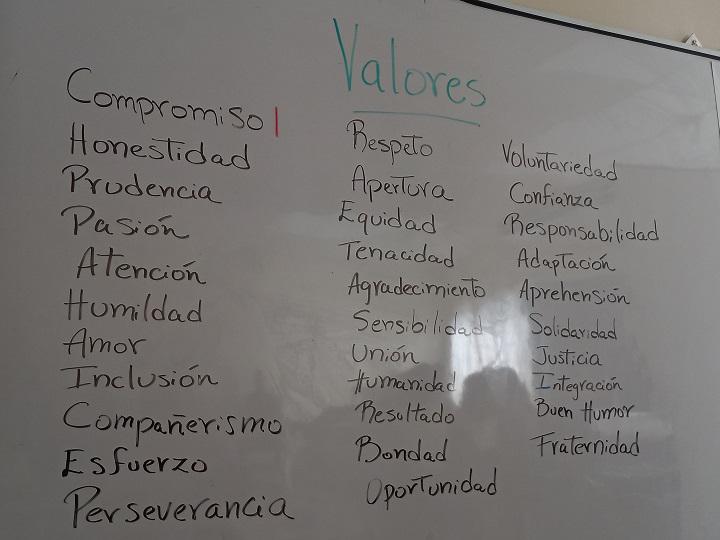 Valores
Compromiso
Honestidad
Prudencia
Pasión
Atención
Humildad
Amor
Inclusión
Compañerismo
Esfuerzo
Perseverancia
Respeto
Apertura
Equidad
Tenacidad
Agradecimiento
Sensibilidad
Unión
Humanidad
Resultado
Bondad
Oportunidad
Voluntariedad
Confianza
Responsabilidad
Adaptación
Aprehensión
Solidaridad
Justicia
Integración
Buen Humor
Fraternidad